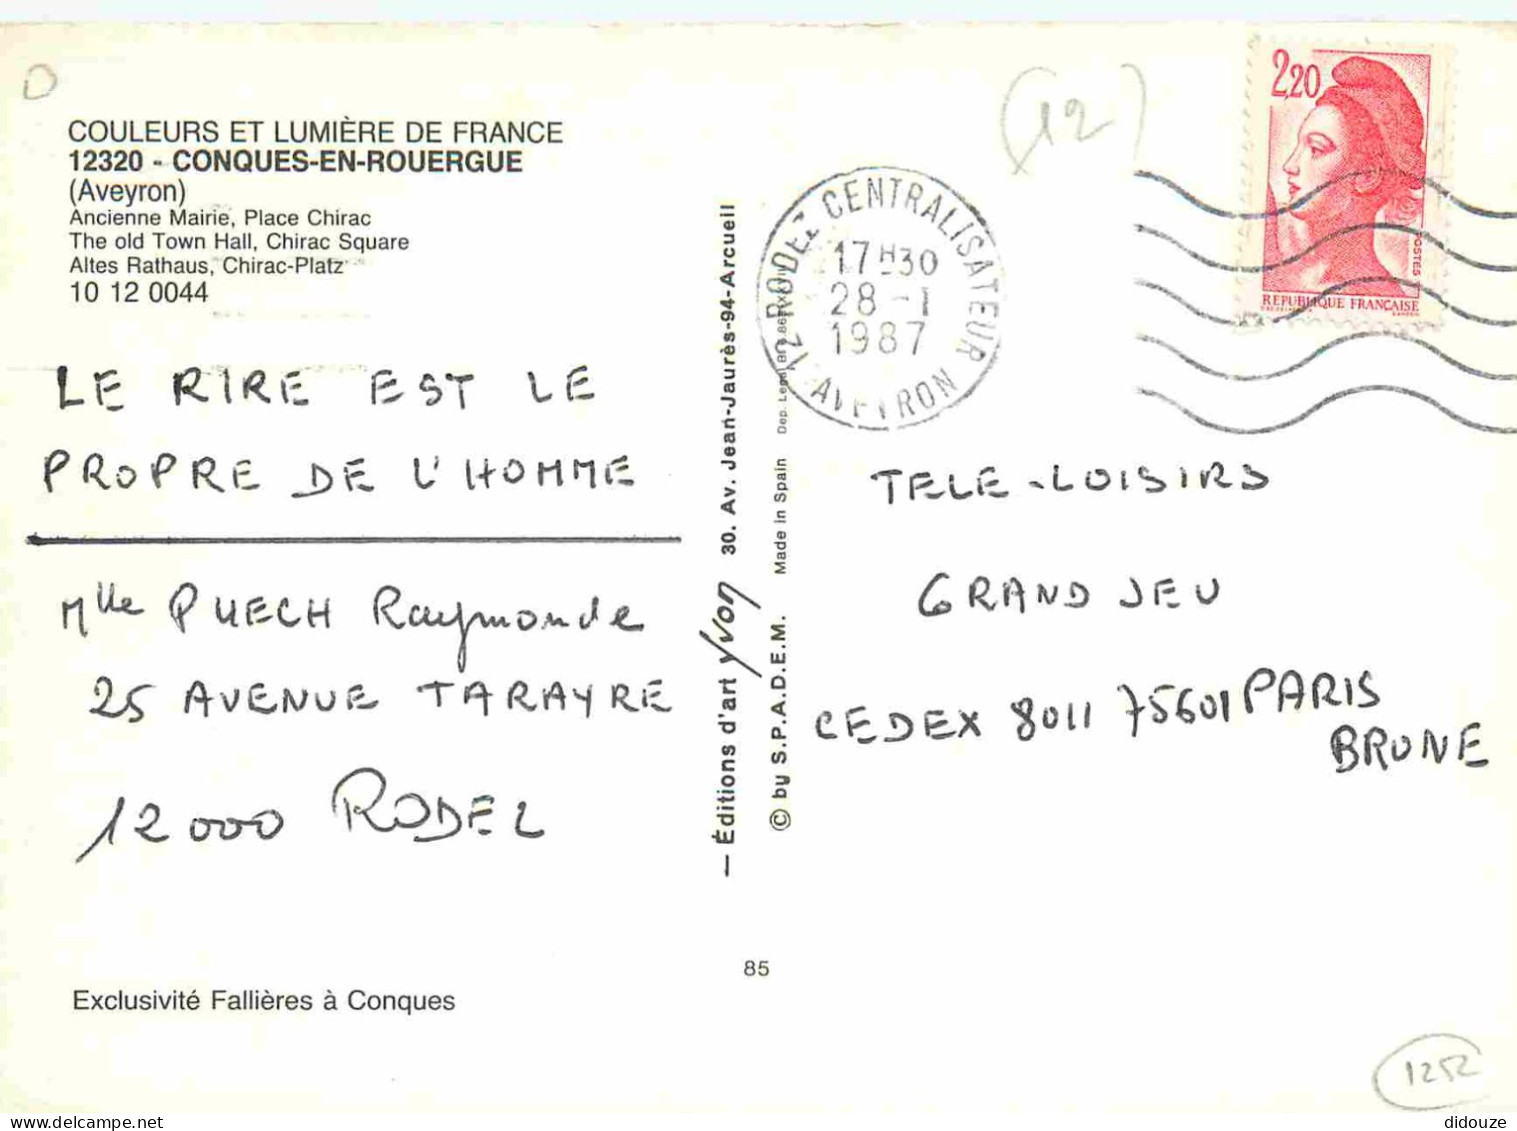 COULEURS ET LUMIÈRE DE FRANCE
12320 - CONQUES-EN-ROUERGUE
(Aveyron)
Ancienne Mairie, Place Chirac
The old Town Hall, Chirac Square
Altes Rathaus, Chirac-Platz
10 12 0044
LE RIRE EST LE
PROPRE DE L'HOMME
Mlle PUECH Raymonde
25 AVENUE TARAYRE
12000 RODEZ
Exclusivité Fallières à Conques
— Éditions d'art Yvon 30. Av. Jean-Jaurès-94-Arcueil
© by S.P.A.D.E.M. Made in Spain Dep. Legal
85
(12)
12 RODEZ CENTRALISATEUR
17H30
28-1
1987
AVEYRON
2,20
POSTES
REPUBLIQUE FRANÇAISE
TELE-LOISIRS
GRAND JEU
CEDEX 8011 75601 PARIS
BRUNE
1252
didouze